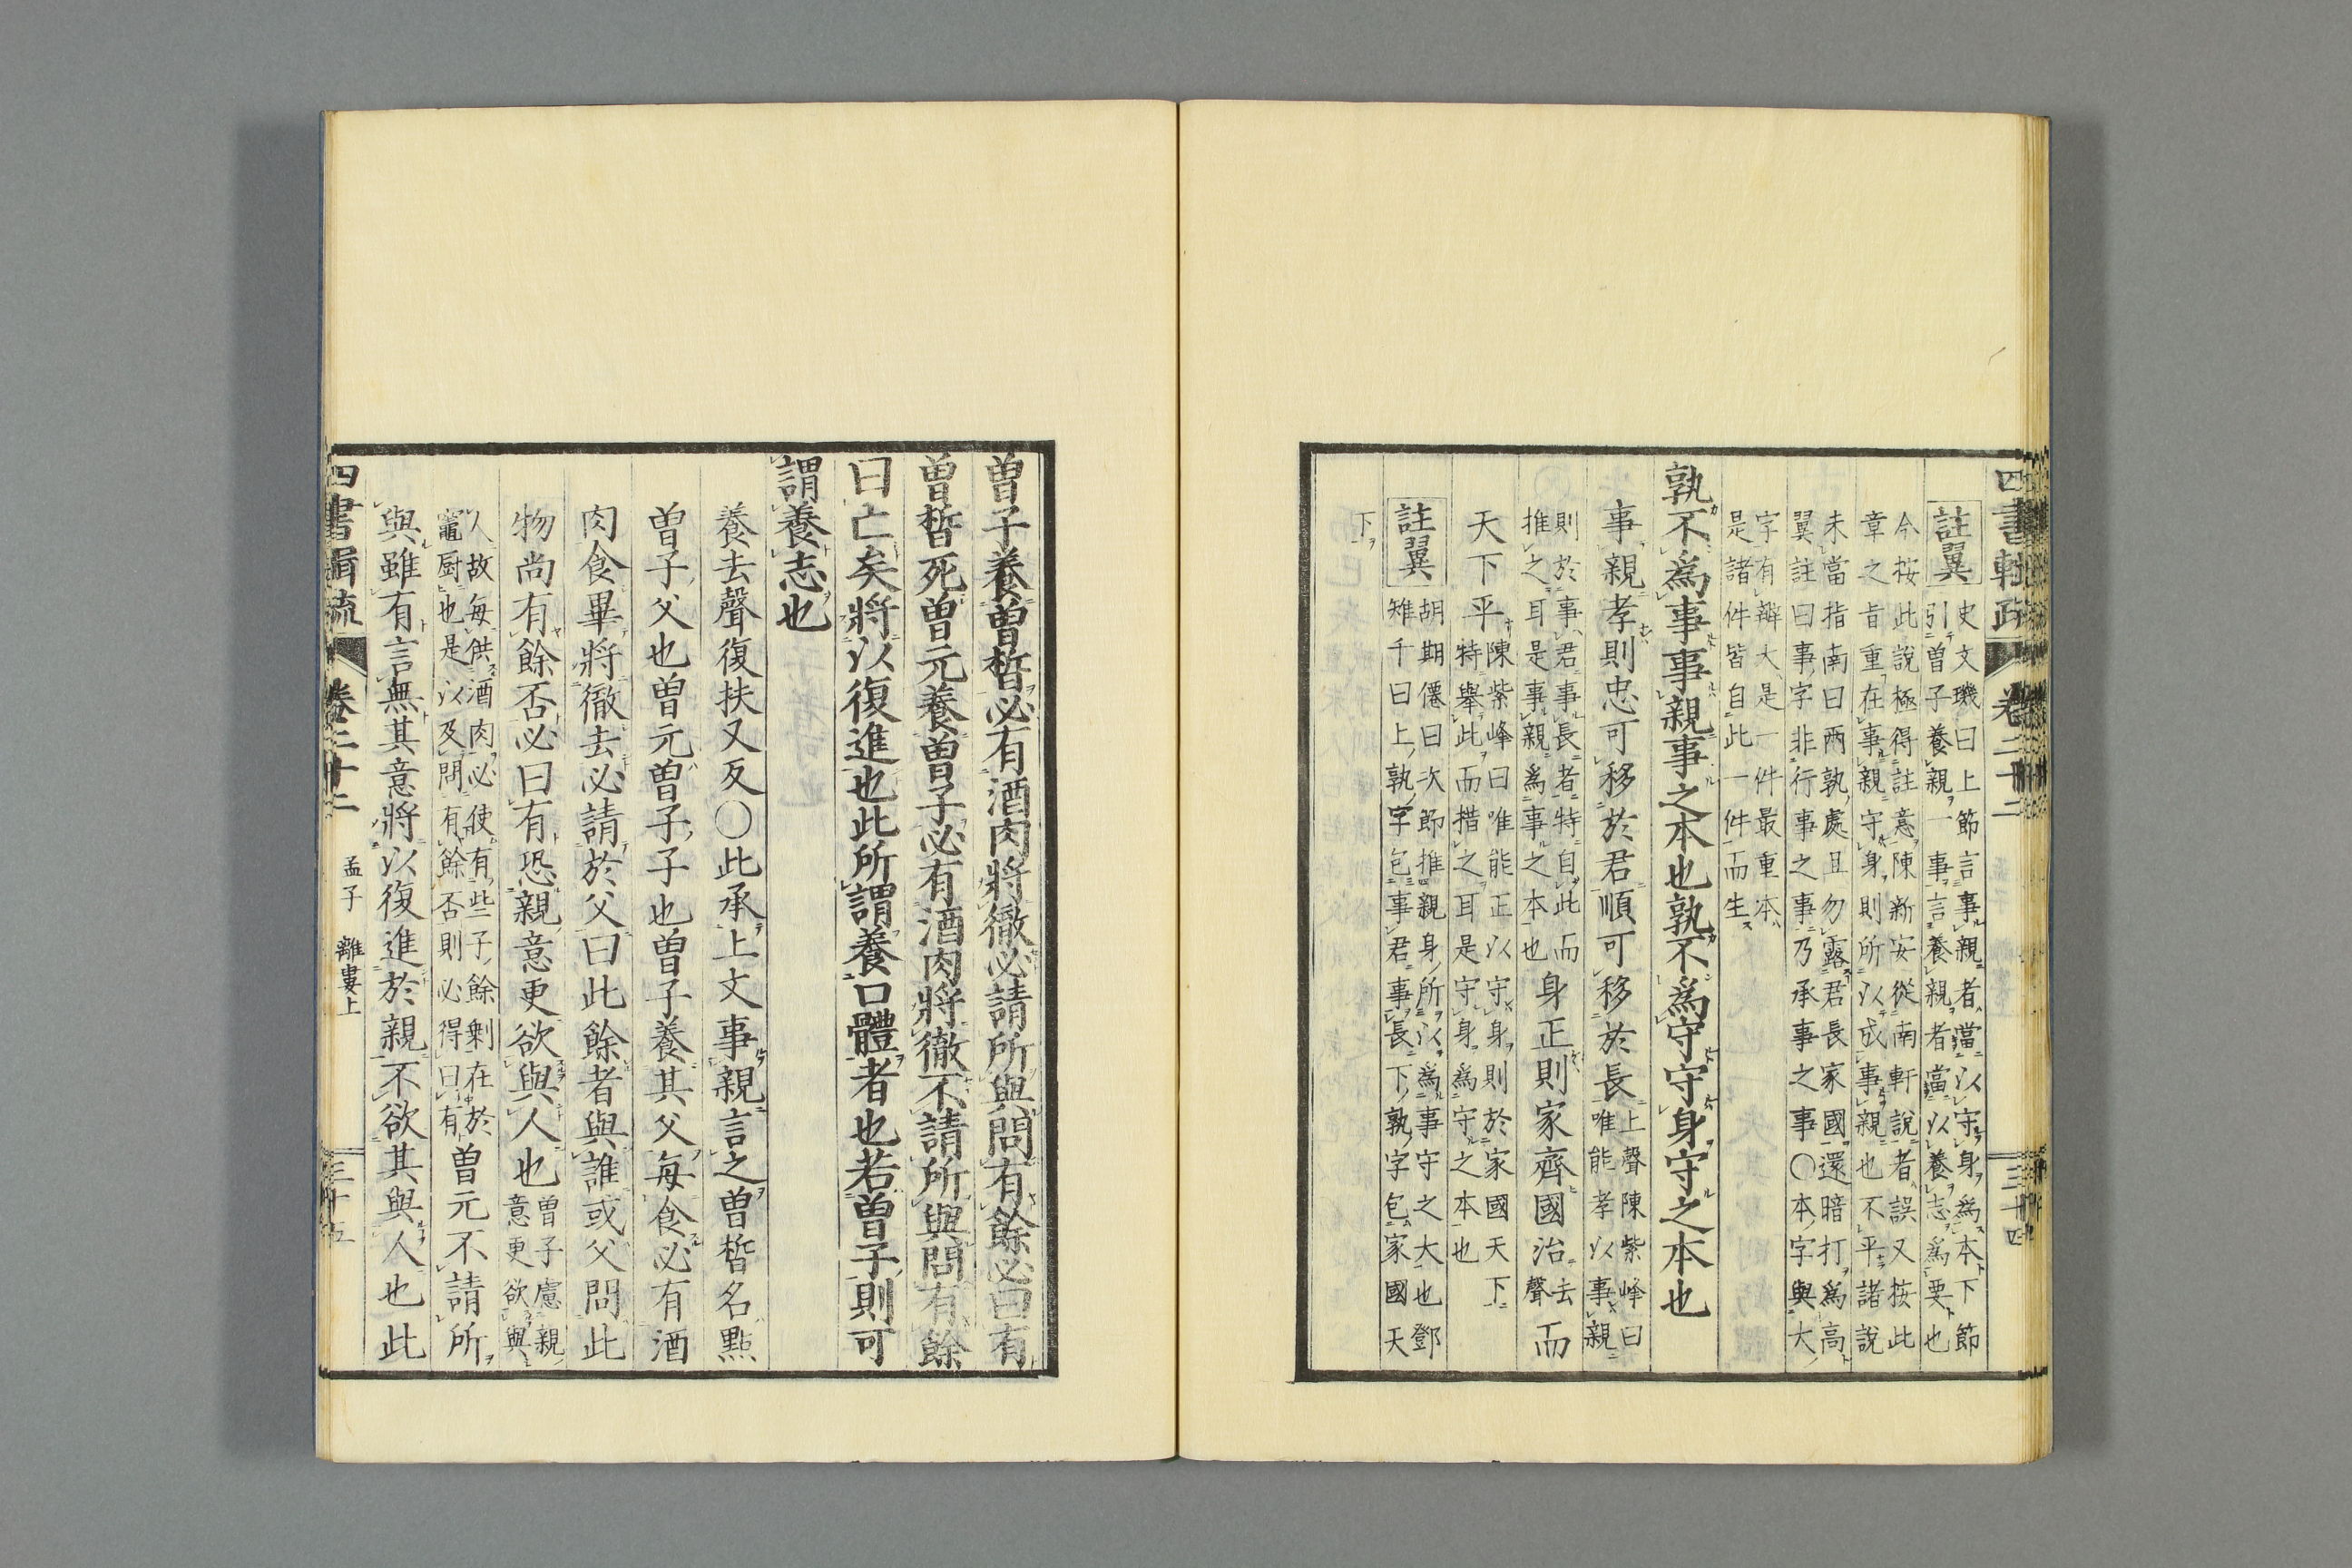 註翼
史文璣曰上節言事親者當以守身爲本下節
引曽子養親一事言養親者當以養志爲要也
今按此說極得註意陳新安從南軒說者誤又按此
章之旨重在事親守身則所以成事親也不平諸說
未當指南曰兩孰處且勿露君長家國還暗打爲高
翼註曰事字非行事之事乃承事之事〇本字與大
字有辧大是一件最重本
是諸件皆自此一件而生
孰不爲事事親事之本也孰不爲守守身守之本也
事親孝則忠可移於君順可移於長
上聲陳紫峰曰
唯能孝以事親
則於事君事長者特自此而
推之耳是事親爲事之本也
身正則家齊國治
去
聲
而
天下平
陳紫峰曰唯能正以守身則於家國天下
特舉此而措之耳是守身爲守之本也
註翼
胡期僊曰次節推親身所以爲事守之大也鄧
雉千曰上孰字包事君事長下孰字包家國天
下
四書輯疏 卷二十二 三十四
曽子養曽晳必有酒肉將徹必請所與問有餘必曰有
曽晳死曽元養曽子必有酒肉將徹不請所與問有餘
曰亡矣將以復進也此所謂養口體者也若曽子則可
謂養志也
養去聲復扶又反〇此承上文事親言之曽晳名點
曽子父也曽元曽子子也曽子養其父每食必有酒
肉食畢將徹去必請於父曰此餘者與誰或父問此
物尚有餘否必曰有恐親意更欲與人也
曽子慮親
意更欲與
人故每供酒肉必使有些子餘剩在於
竈厨也是以及問有餘否則必得曰有
曽元不請所
與雖有言無其意將以復進於親不欲其與人也此
四書輯疏 卷二十二 孟子 離婁上 三十五